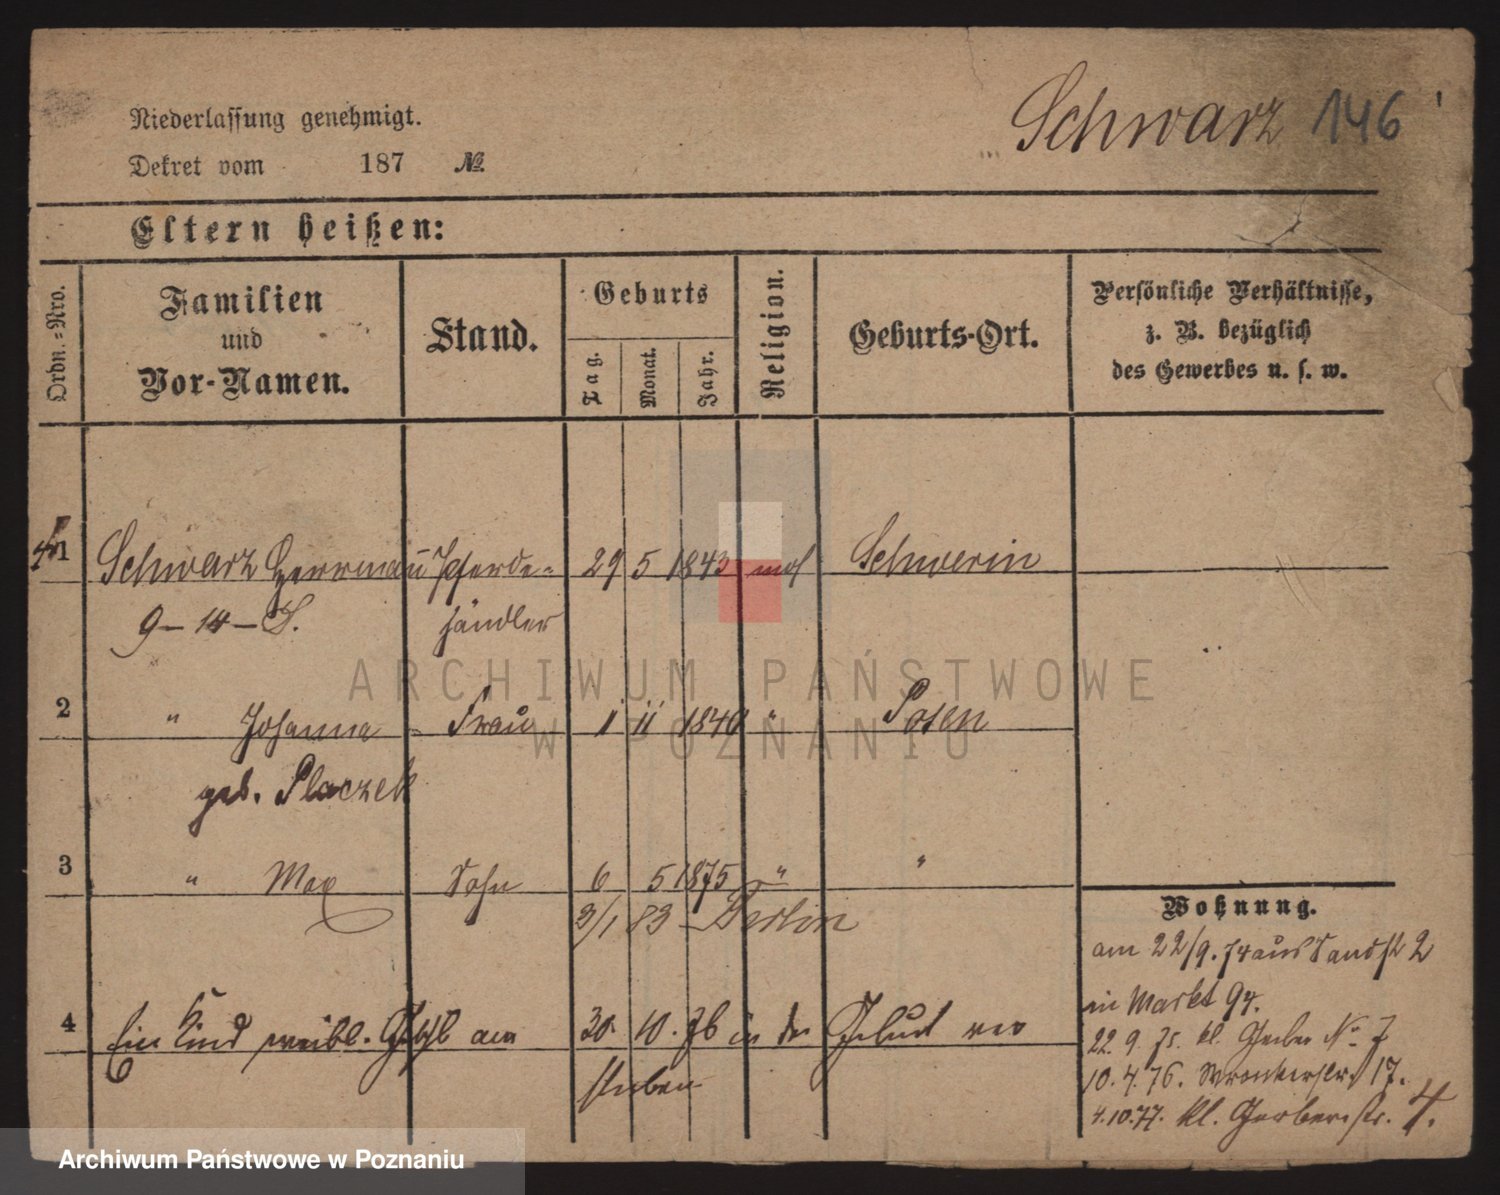 Niederlassung genehmigt.
Schwarz 146
Dekret vom 187 №.
Eltern heißen:
Ordn.=Nro.
Familien
und
Vor-Namen.
Stand.
Geburts
Tag.
Monat.
Jahr.
Religion.
Geburts-Ort.
Persönliche Verhältnisse,
z. B. bezüglich
des Gewerbes u. s. w.
1 Schwarz Herrmañ Pferde- 29 5 1843 mos Schwerin
9-14-S. händler
ARCHIWUM PAŃSTWOWE
W POZNANIU
2 " Johanna Frau 1 11 1840 " Posen
geb. Placzek
3 " Max Sohn 6 5 1875 " "
3/1 83 - Berlin
4 Ein Kind weibl. Geschl am 30. 10. 76 in der Geburt ver
storben
Wohnung.
am 22/9. 74 aus Sandst 2
in Markt 94.
22. 9. 75. kl. Gerber No 7
10. 4. 76. Wronkerstr. 17.
4.10.77. kl. Gerberstr. 4.
Archiwum Państwowe w Poznaniu